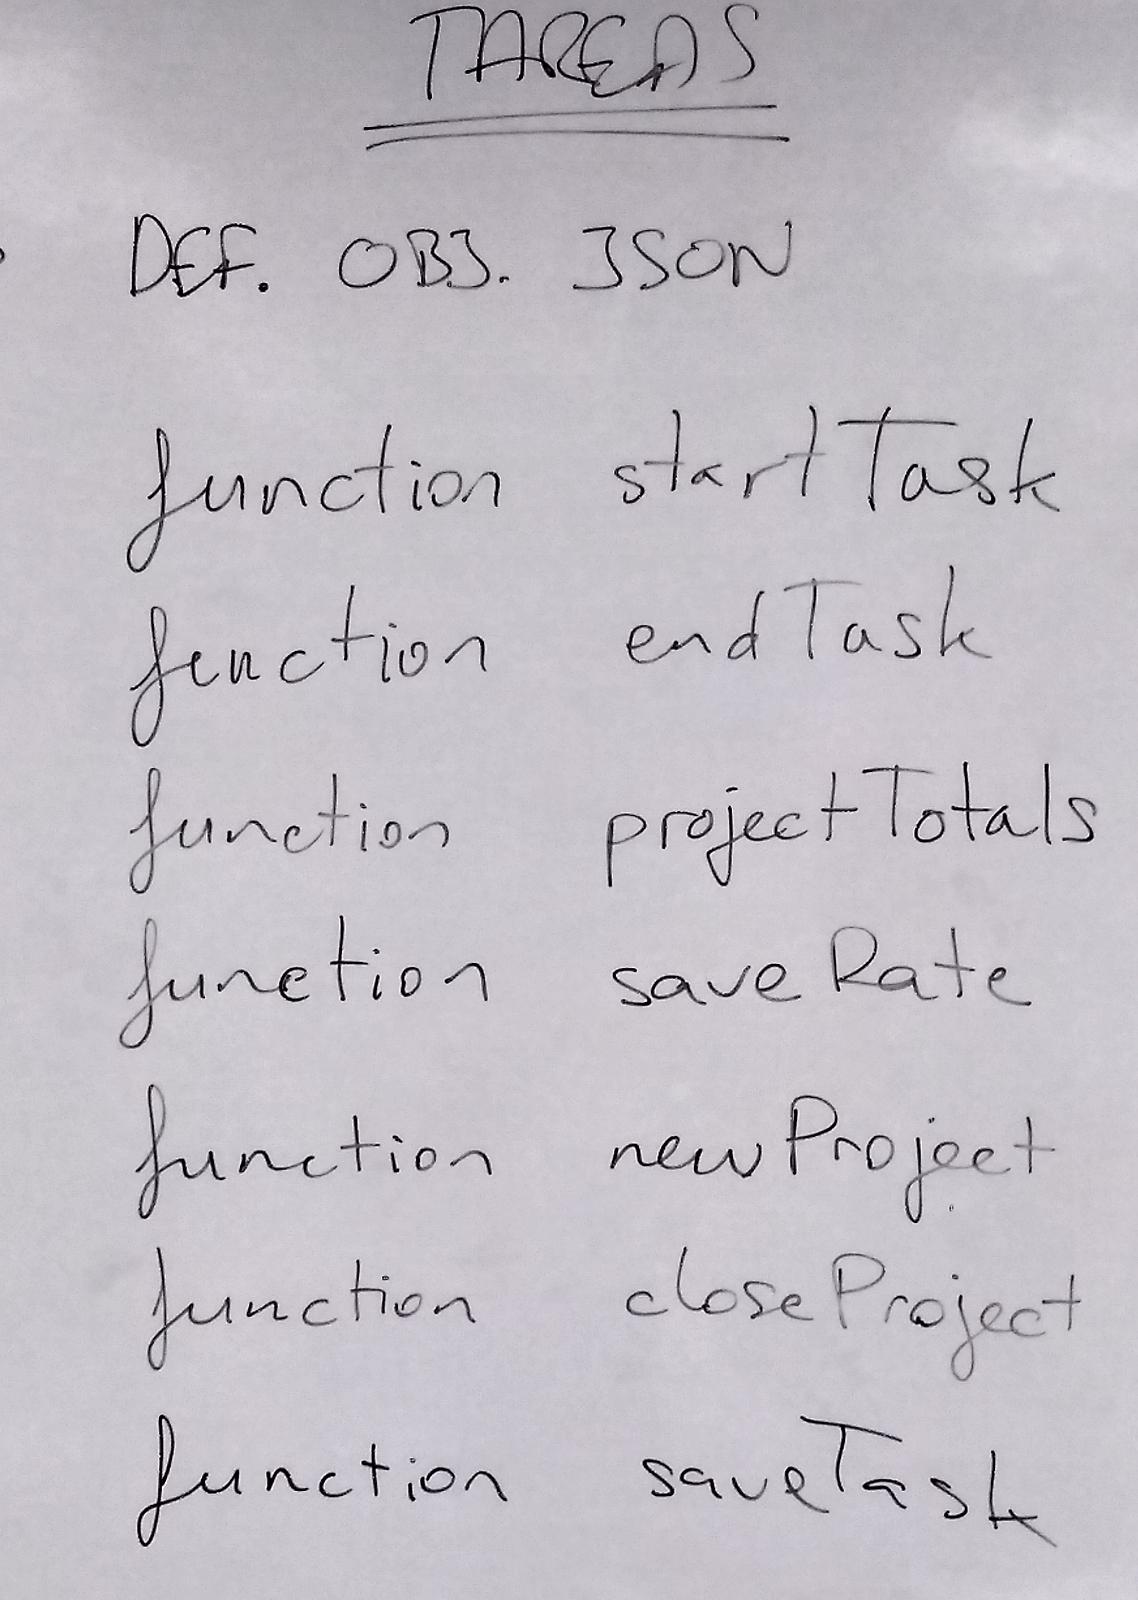 TAREAS
DEF. OBJ. JSON
function startTask
function endTask
function projectTotals
function saveRate
function newProject
function closeProject
function saveTask